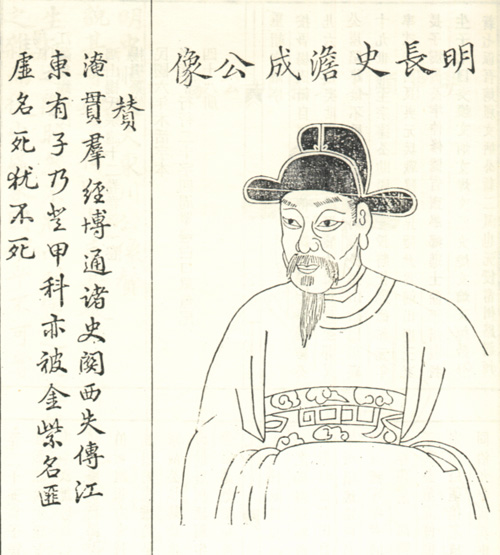 明長史澹成公像
贊
淹貫羣經博通诸史関西失傳江
東有子乃登甲科亦被金紫名匪
虚名死犹不死